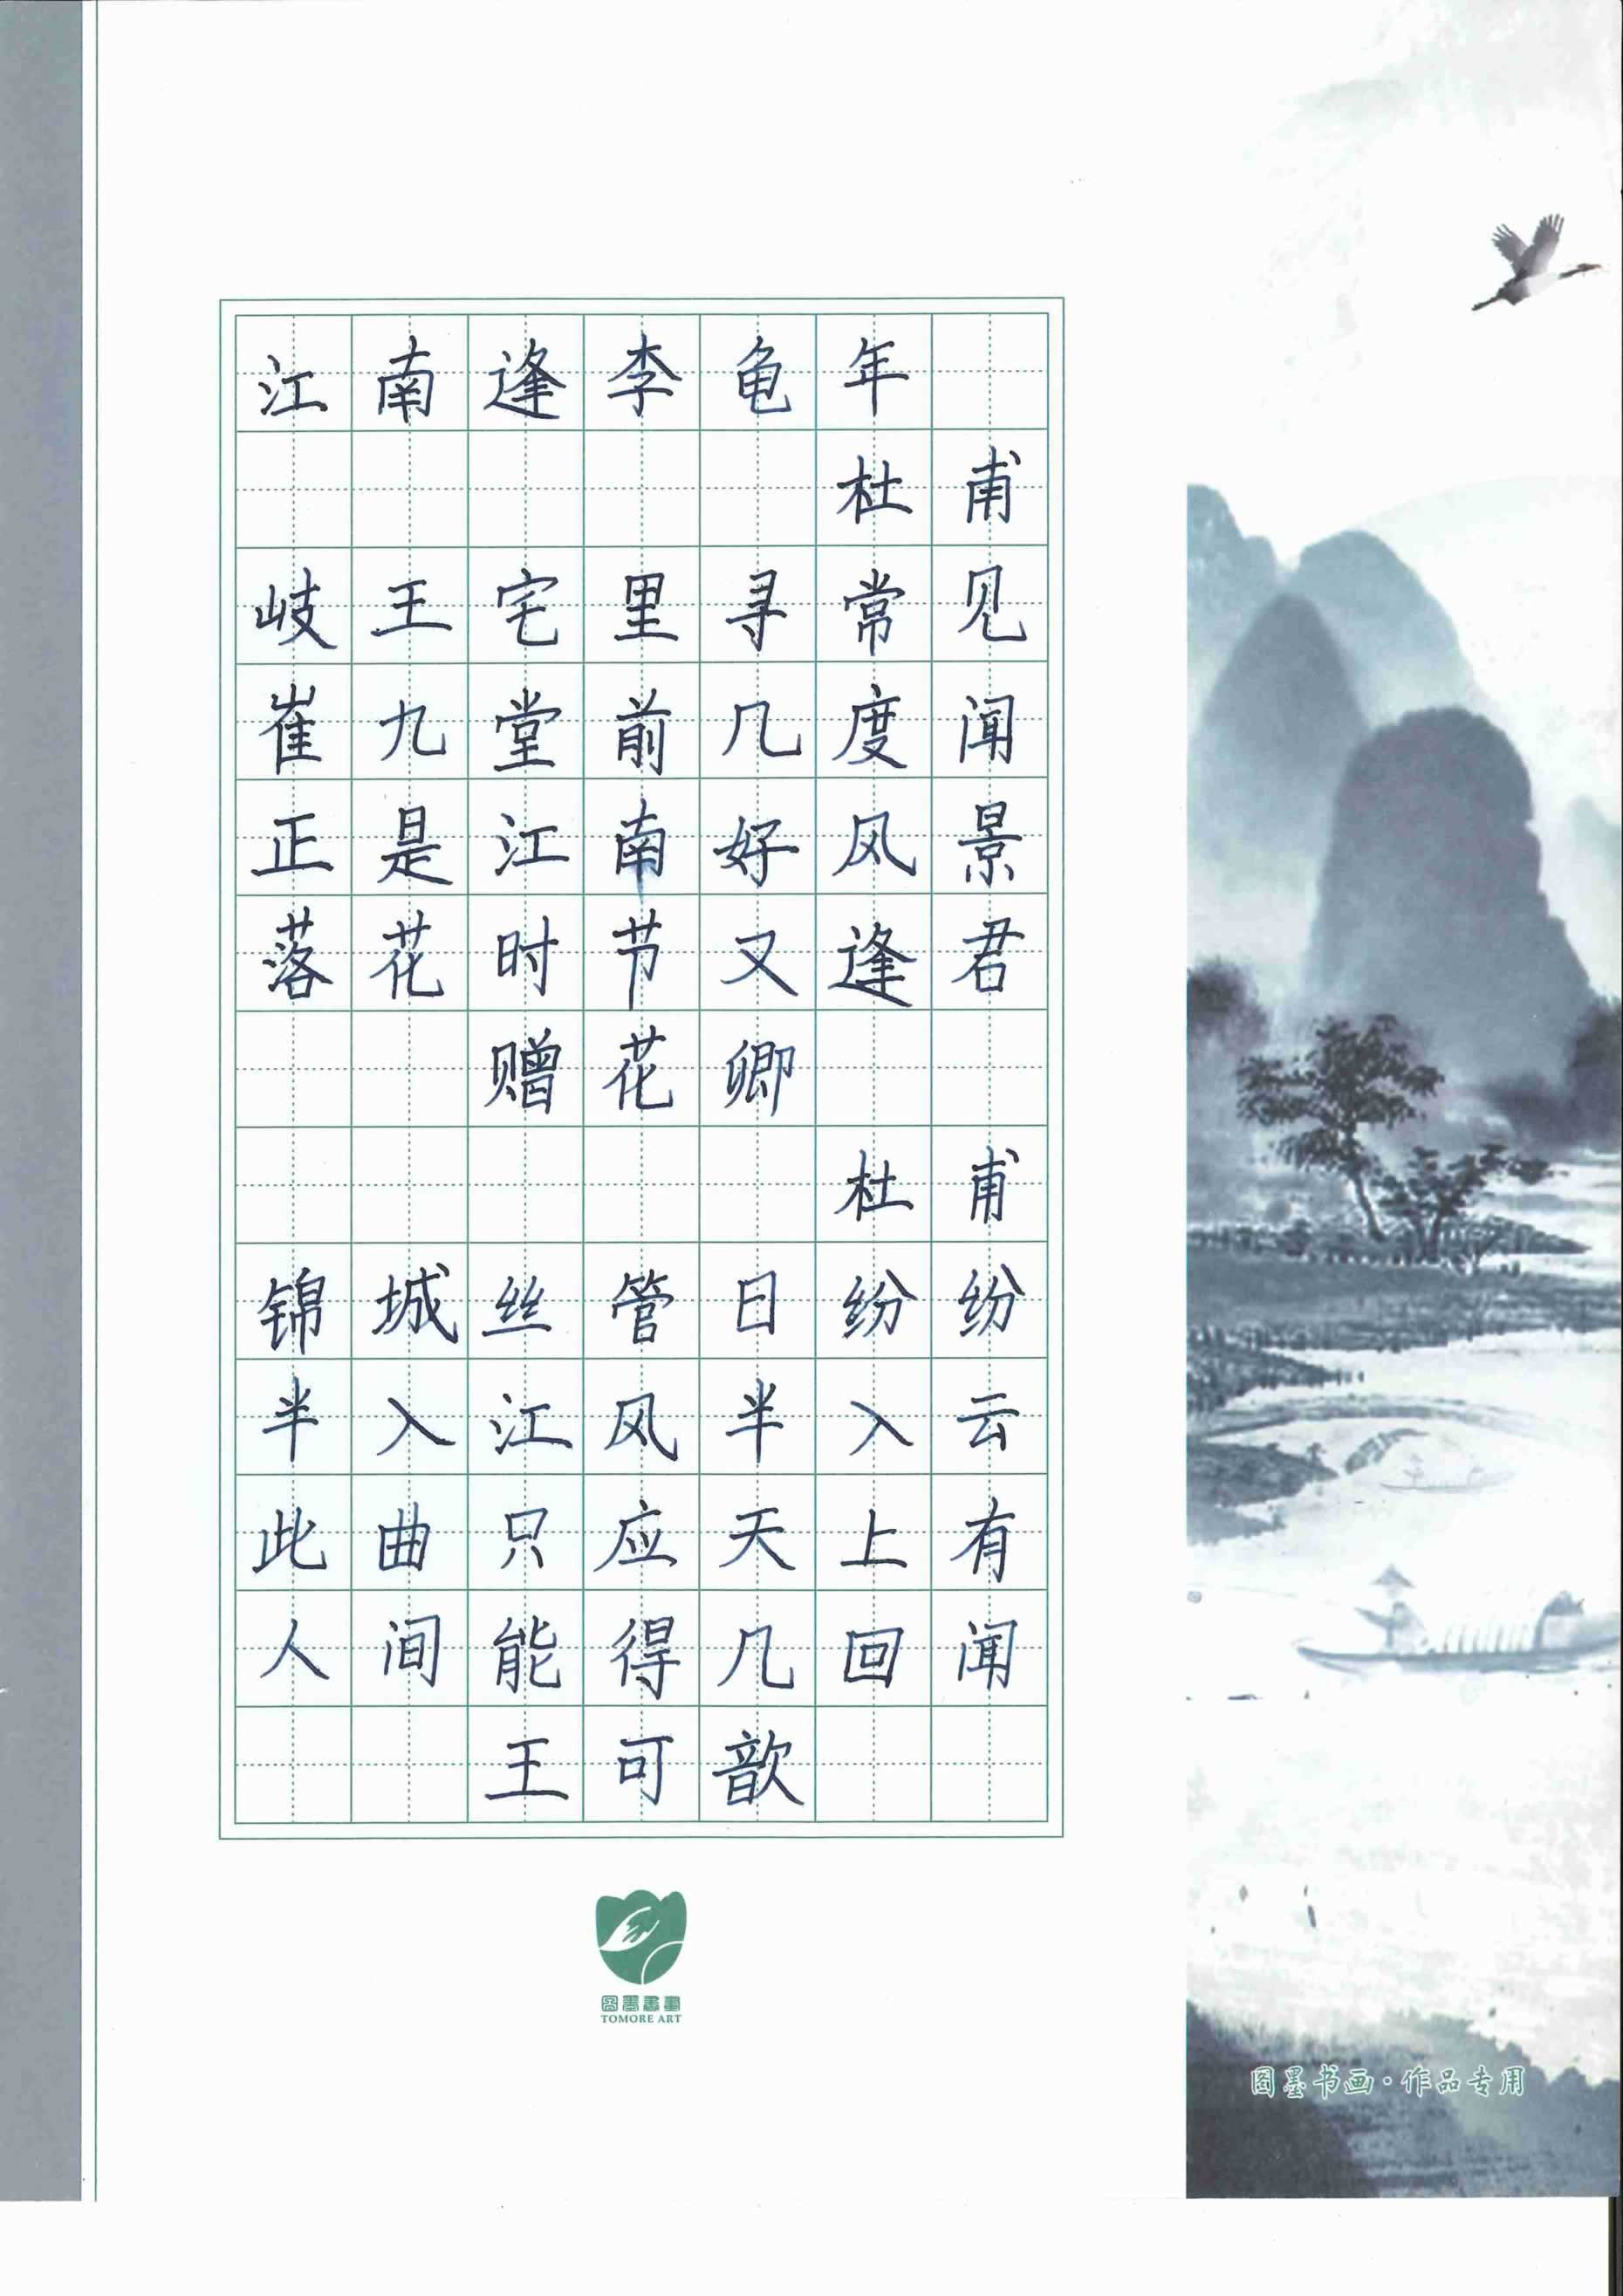 江南逢李龟年
杜甫
岐王宅里寻常见
崔九堂前几度闻
正是江南好风景
落花时节又逢君
赠花卿
杜甫
锦城丝管日纷纷
半入江风半入云
此曲只应天上有
人间能得几回闻
王可歆
图墨書畫
TOMORE ART
图墨书画·作品专用